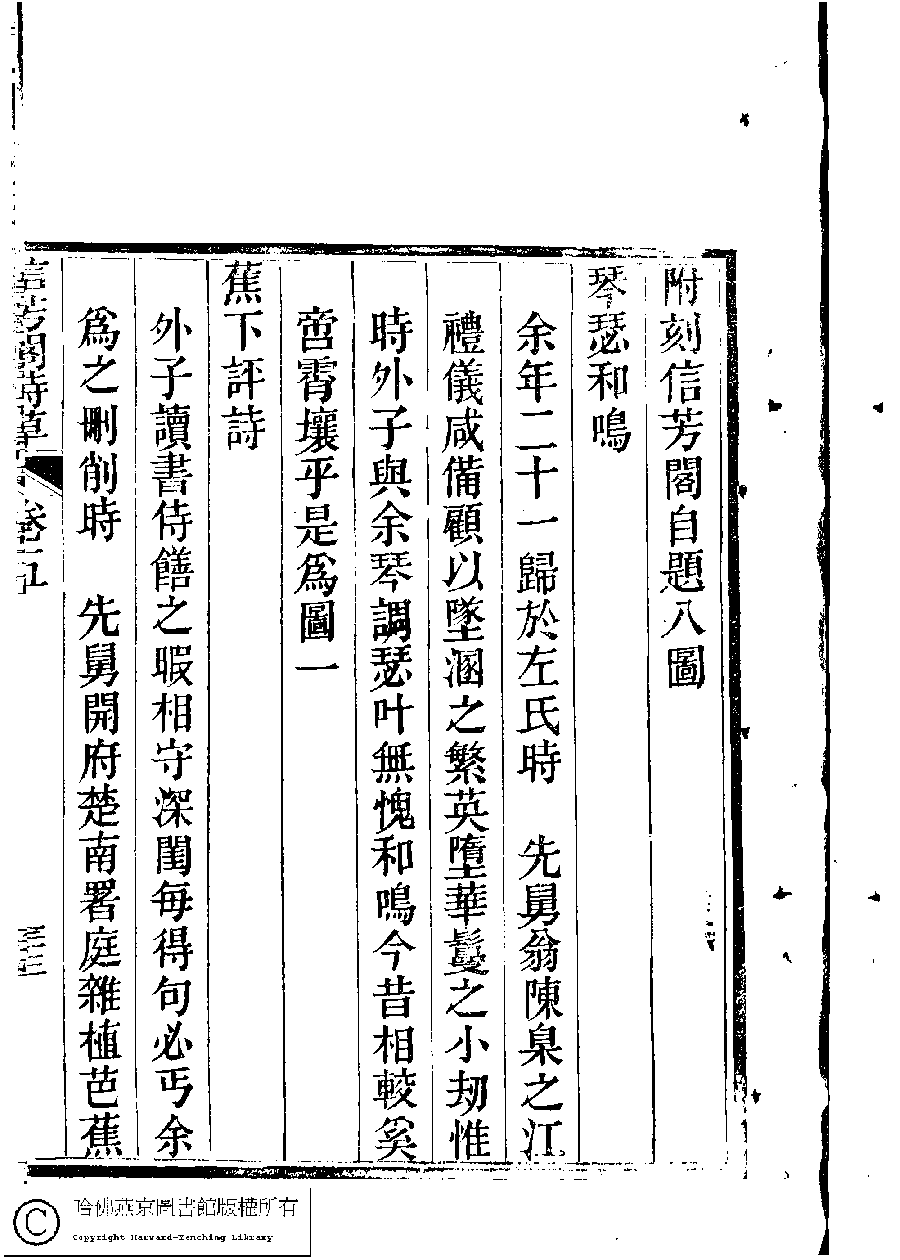 附刻信芳閣自題八圖
琴瑟和鳴
余年二十一歸於左氏時　先舅翁陳臬之江
禮儀咸備顧以墜溷之繁英墮華鬘之小劫惟
時外子與余琴調瑟叶無愧和鳴今昔相較奚
啻霄壤乎是爲圖一
蕉下評詩
外子讀書侍饍之暇相守深閨每得句必丐余
爲之刪削時　先舅開府楚南署庭雜植芭蕉
信芳閣詩草 卷五
三三
哈佛燕京圖書館版權所有
Copyright Harvard-Yenching Library